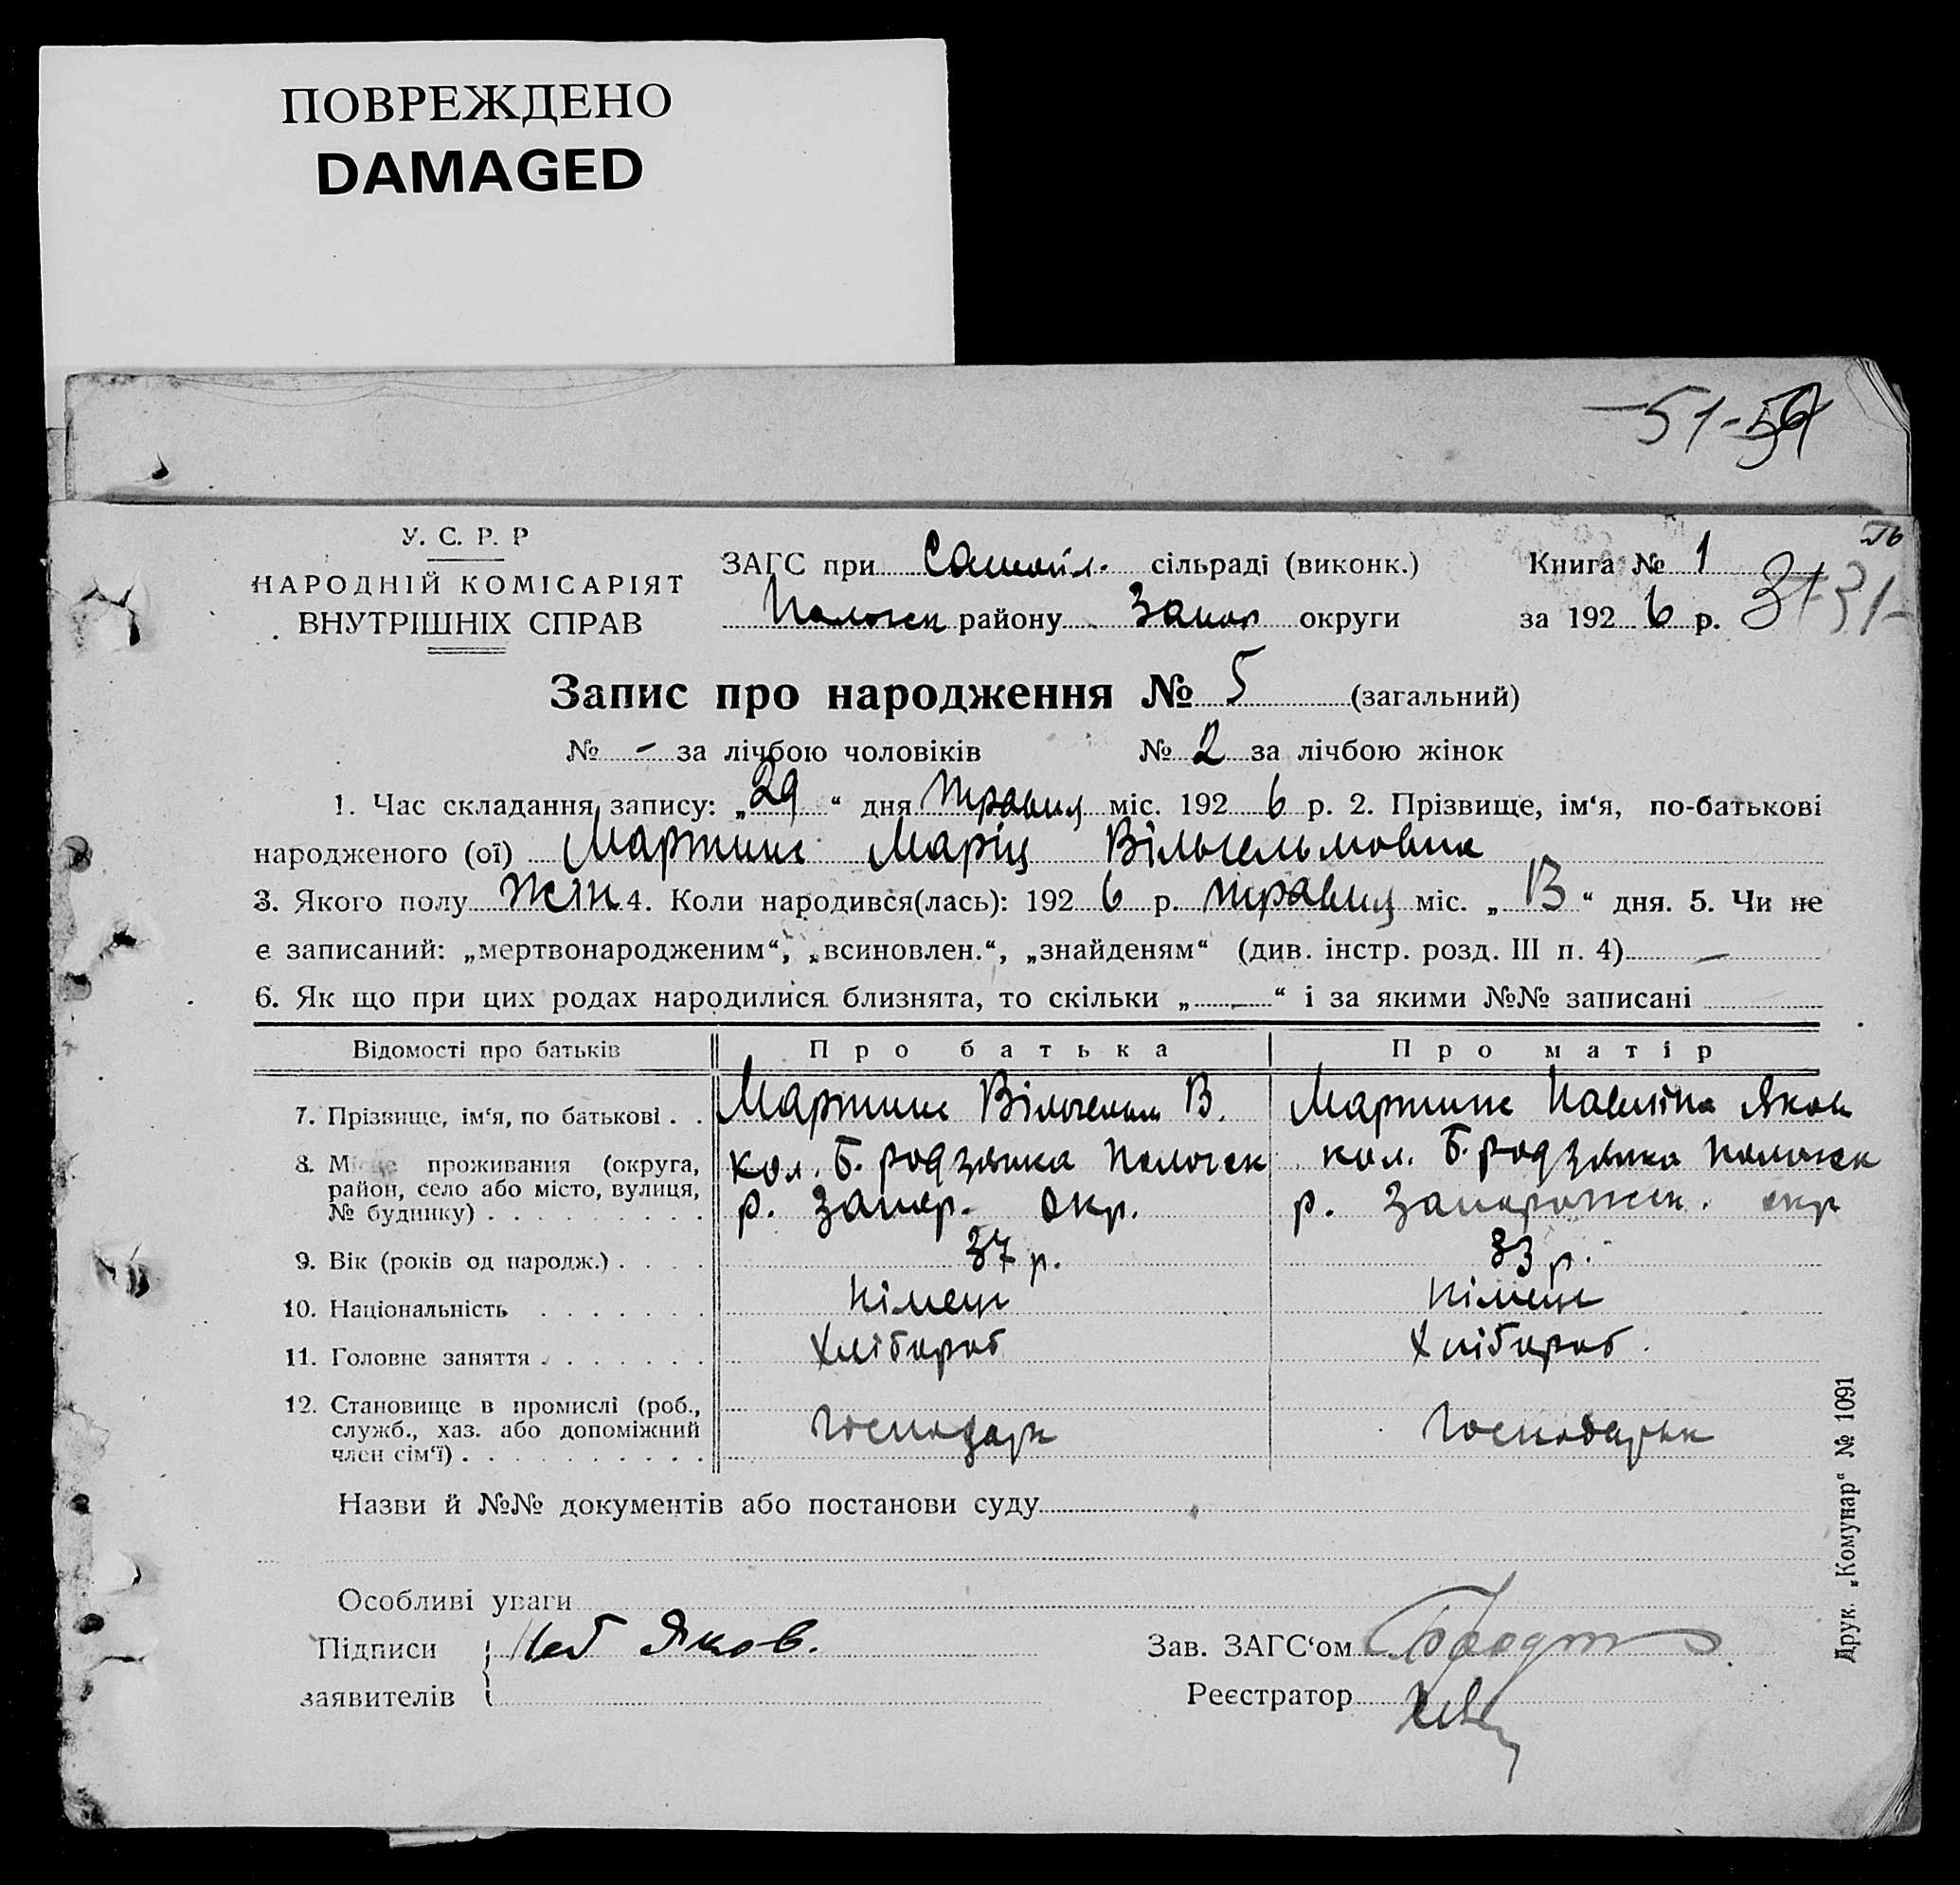 ПОВРЕЖДЕНО
DAMAGED
51-
У. С. Р. Р
НАРОДНІЙ КОМІСАРІЯТ
ВНУТРІШНІХ СПРАВ
ЗАГС при сільраді (виконк.)
району Запор округи
Книга № 1
за 1926 р. 31
Запис про народження № 5 (загальний)
№ - за лічбою чоловіків № 2 за лічбою жінок
1. Час складання запису: „29“ дня травня міс. 1926 р. 2. Прізвище, ім‘я, по-батькові
народженого (ої) Мартинс Марія Вільгельмовна
3. Якого полу жін 4. Коли народився(лась): 1926 р. травня міс. „13“ дня. 5. Чи не
є записаний: „мертвонародженим“, „всиновлен.“, „знайденям“ (див. інстр. розд. III п. 4) —
6. Як що при цих родах народилися близнята, то скільки „-“ і за якими №№ записані
Відомості про батьків Про батька Про матір
7. Прізвище, ім‘я, по батькові . . Мартинс Вільгельм В. Мартинс Павліна Яков
8. Місце проживания (округа, район, село або місто, вулиця, № будинку) . . . . . . . . . кол. Б. Родзянка Пологск р. Запор. окр. кол. Б. Родзянка Пологск р. Запорожск. окр
9. Вік (років од народж.) . . . . 37 р. 33 р.
10. Національність . . . . . . . німець німець
11. Головне заняття . . . . . . . Хлібороб Хлібороб.
12. Становище в промислі (роб., служб., хаз. або допоміжний член сім‘ї) . . . . . . . . . . Господарь Господарьк
Назви й №№ документів або постанови суду
Особливі уваги
Підписи
заявителів
Яков.
Зав. ЗАГС‘ом
Реєстратор
Друк. „Комунар“ № 1091